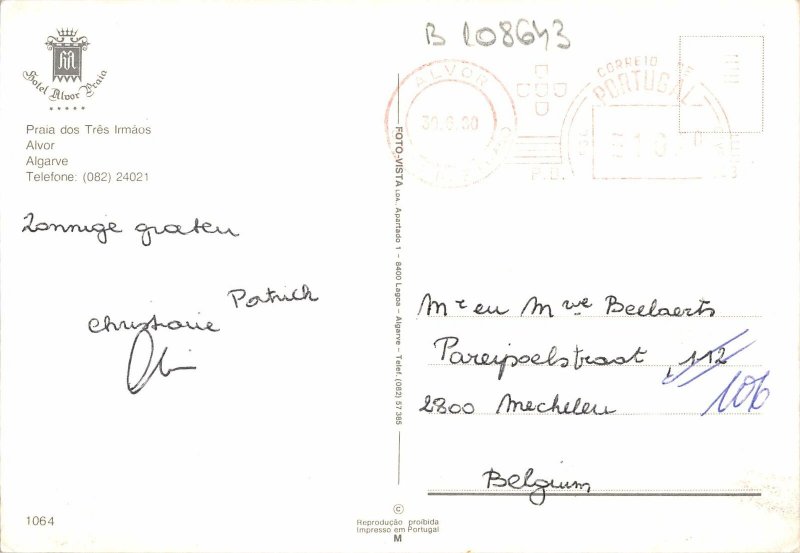 B 108643
Hotel Alvor Praia
Praia dos Três Irmãos
Alvor
Algarve
Telefone: (082) 24021
Zonnige groeten
Patrick
Christiane
ALVOR
CORREIO DE
PORTUGAL
P.B.
FOTO-VISTA LDA. Apartado 1 - 8400 Lagoa - Algarve - Telef. (082) 57 385
Mr en Mve Beelaerts
Pareipoelstraat 112
106
2800 Mechelen
Belgium
1064
©
Reprodução proibida
Impresso em Portugal
M